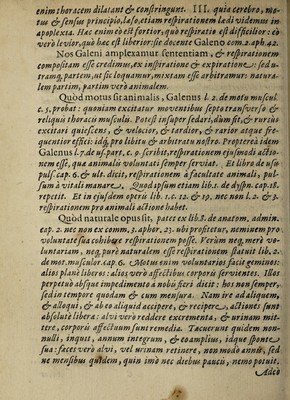 enim thoracem dilatant & constringunt. III. quia cerebro, mo-
tus & sensus principio, laso, etiam respirationem ladi videmus in
apoplexia. Hac enim eo est fortior, quò respiratio est difficilior: eò
verò levior, quò hac est liberior: sic docente Galeno com. 2. aph. 42.
Nos Galeni amplexamur sententiam, & respirationem
compositam esse credimus, ex inspiratione & expiratione: sed u-
tramq, partem, ut sic loquamur, mixtam esse arbitramur: natura-
lem partim, partim verò animalem.
Quòd motus sit animalis, Galenus l. 2. de motu muscul.
c. 5. probat: quoniam excitatur moventibus septo transverso &
reliquis thoracis musculis. Potest insuper sedari, dùm fit, & rursus
excitari quiescens, & velocior, & tardior, & rarior atque fre-
quentior effici: idq, pro libitu & arbitratu nostro. Propterea idem
Galenus l. 7. de us. part. c. 9. scribit, respirationem ejusmodi actio-
nem esse, quæ animalis voluntati semper serviat. Et libro de usu
puls. cap. 6. & ult. dicit, respirationem à facultate animali, pul-
sum à vitali manare. Quod ipsum etiam lib. 1. de dyspn. cap. 18.
repetit. Et in ejusdem operis lib. 1. c. 12. & 19. nec non l. 2. & 3.
respirationem pro animali actione habet.
Quòd naturale opus sit, patet ex lib. 8. de anatom. admin.
cap. 2. nec non ex comm. 3. aphor. 23. ubi profitetur, neminem pro
voluntate sua cohibere respirationem posse. Verùm neq, merè vo-
luntariam, neq, purè naturalem esse respirationem statuit lib. 2.
de mot. muscular. cap. 6. Motus enim voluntarios facit geminos:
alios planè liberos: alios verò affectibus corporis servientes. Illos
perpetuò absque impedimento a nobis fieri dicit: hos non semper,
sed in tempore quodam & cum mensura. Nam ire ad aliquem,
& alloqui, & ab eo aliquid accipere, & recipere, actiones sunt
absolutè libera: alvi verò reddere excrementa, & urinam mit-
tere, corporis affectuum sunt remedia. Tacuerunt quidem non-
nulli, inquit, annum integrum, & eo amplius, idque sponte
sua: faces verò alvi, vel urinam retinere, non modò anno, sed
ne mensibus quidem, quin imò nec diebus paucis, nemo potuit.
Adeò